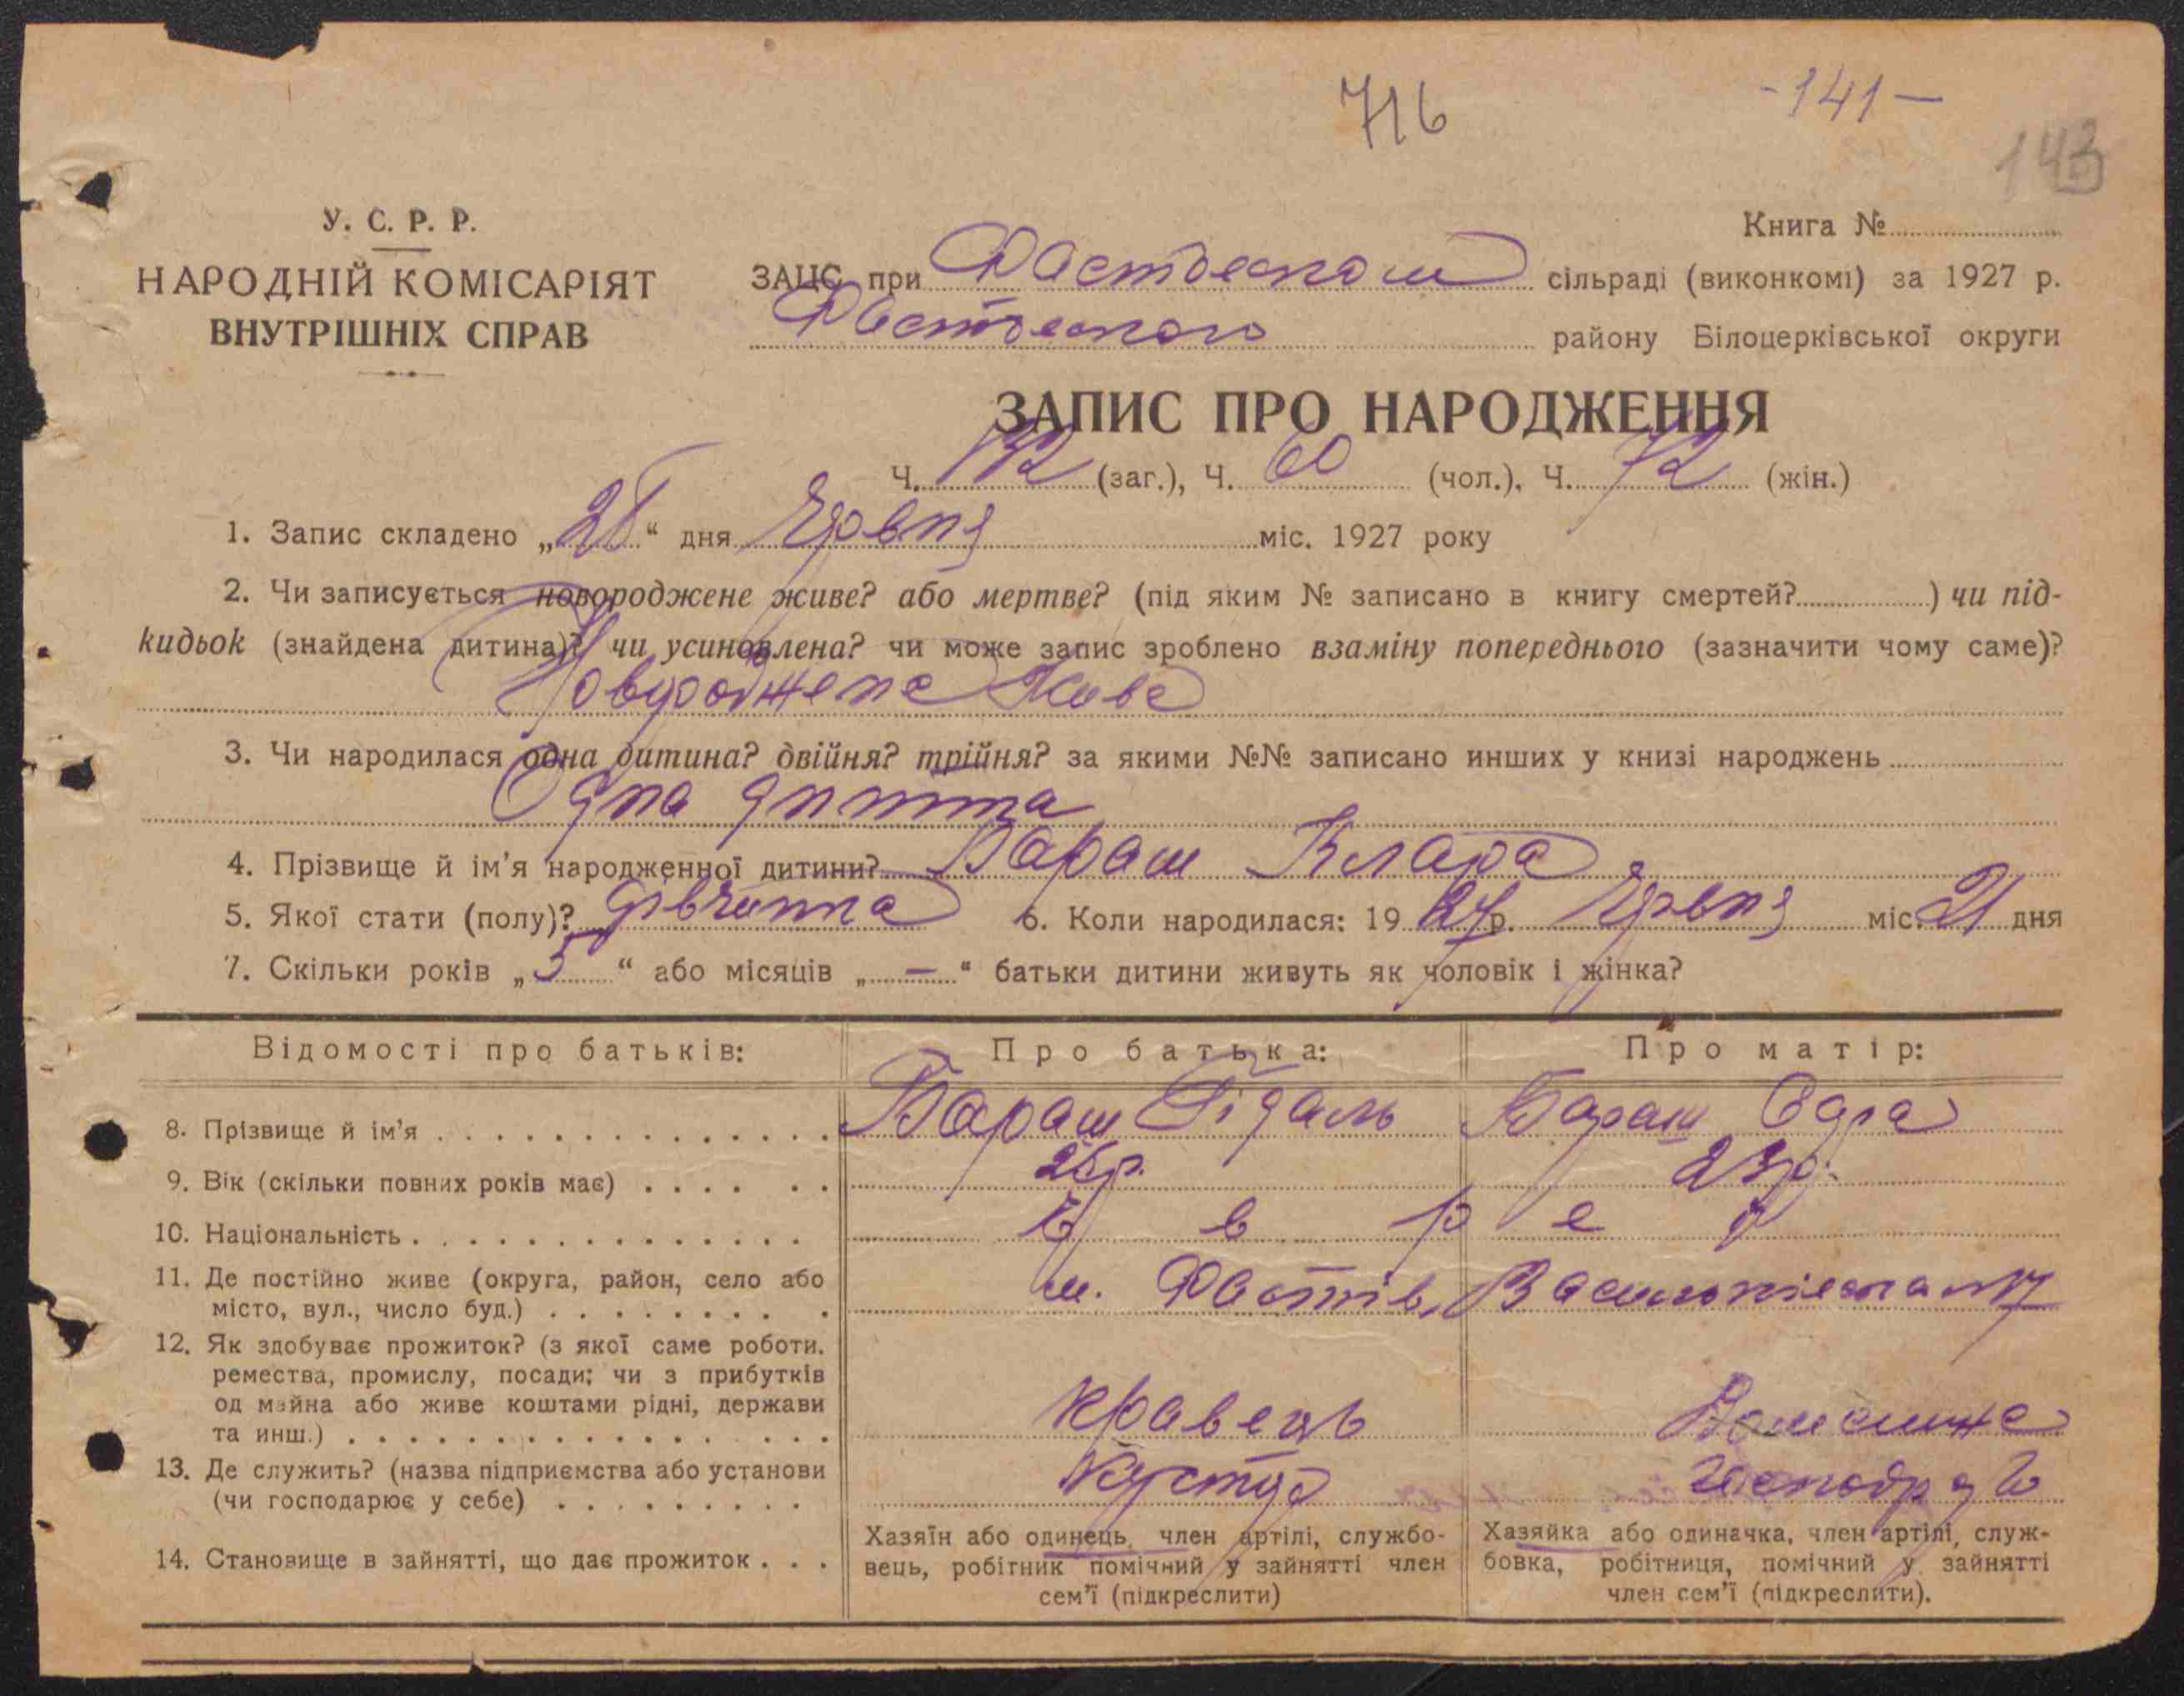 716
- 141 —
143
У. С. Р. Р.
НАРОДНІЙ КОМІСАРІЯТ
ВНУТРІШНІХ СПРАВ
Книга №
ЗАЦС при Фастовском сільраді (виконкомі) за 1927 р.
Фастовского району Білоцерківської округи
ЗАПИС ПРО НАРОДЖЕННЯ
Ч. 132 (заг.), Ч. 60 (чол.), Ч. 72 (жін.)
1. Запис складено „ “ дня Червня міс. 1927 року
2. Чи записується новороджене живе? або мертве? (під яким № записано в книгу смертей? ) чи під-
кидьок (знайдена дитина)? чи усиновлена? чи може запис зроблено взаміну попереднього (зазначити чому саме)?
Новороджена Жива
3. Чи народилася одна дитина? двійня? трійня? за якими №№ записано инших у книзі народжень
Одна дитина
4. Прізвище й ім'я народженної дитини? Бараш Клара
5. Якої стати (полу)? Дівчинка 6. Коли народилася: 19 27 р. Червня міс. 21 дня
7. Скільки років „ 5 “ або місяців „ — “ батьки дитини живуть як чоловік і жінка?
Відомості про батьків: Про батька: Про матір:
8. Прізвище й ім'я Бараш Гідаль Бараш
9. Вік (скільки повних років має) 26р. 23р.
10. Національність Евреї
11. Де постійно живе (округа, район, село або
місто, вул., число буд.) м. Фастів,
12. Як здобуває прожиток? (з якої саме роботи,
ремества, промислу, посади; чи з прибутків
од майна або живе коштами рідні, держави
та инш.) кравець Домашне
13. Де служить? (назва підприємства або установи
(чи господарює у себе) Кустар
14. Становище в зайнятті, що дає прожиток
Хазяїн або одинець, член артілі, службо-
вець, робітник помічний у зайнятті член
сем'ї (підкреслити)
Хазяйка або одиначка, член артілі, служ-
бовка, робітниця, помічний у зайнятті
член сем'ї (підкреслити).